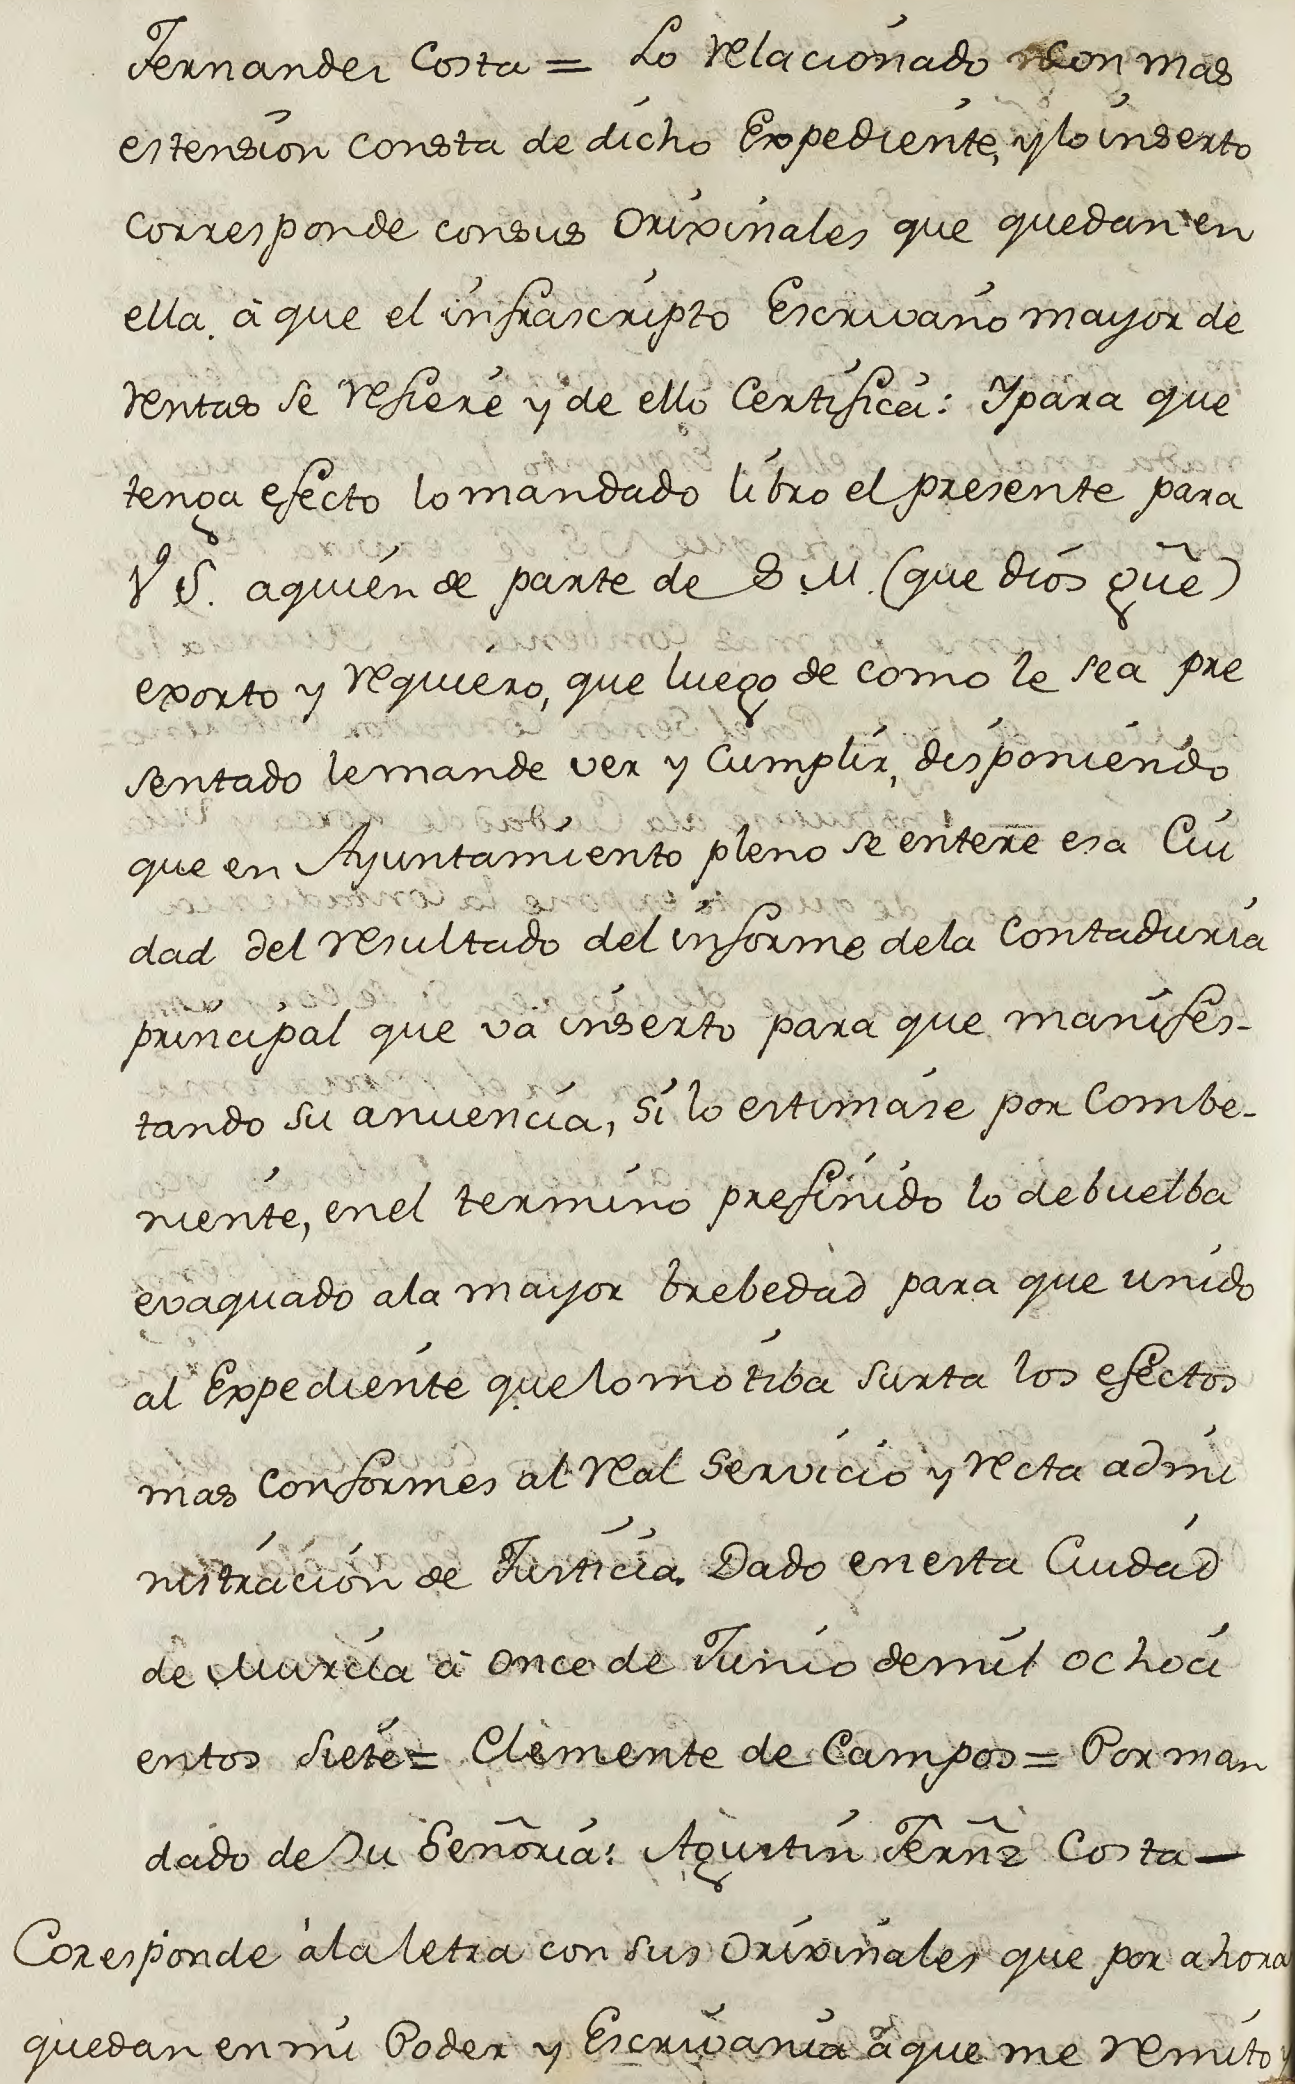 Fernandez Costa = Lo relacionado con mas
estension consta de dicho Expediente, y lo inserto
corresponde con sus Orixinales que quedan en
ella. à que el infrascripto Escrivano mayor de
rentas se refiere y de ello Certifica: Y para que
tenga efecto lo mandado libro el presente para
V S. a quien de parte de S. M. (que dios gũe)
exorto y requiero, que luego de como le sea pre
sentado le mande ver y cumplir, disponiendo
que en Ayuntamiento pleno se entere esa Ciu
dad del resultado del informe de la Contaduria
principal que va inserto para que manifes-
tando su anuencia, si lo estimase por Combe-
niente, en el termino prefinido lo debuelba
evaquado a la mayor brebedad para que unido
al Expediente que lo motiba surta los efectos
mas conformes al real Servicio y recta admi
nistracion de Justicia. Dado en esta Ciudad
de Murcia à once de Junio de mil ochoci
entos siete = Clemente de Campos = Por man
dado de Su Señoria: Agustin Ferñz Costa —
Coresponde à la letra con sus Orixinales que por ahora
quedan en mi Poder y Escrivania à que me remito y